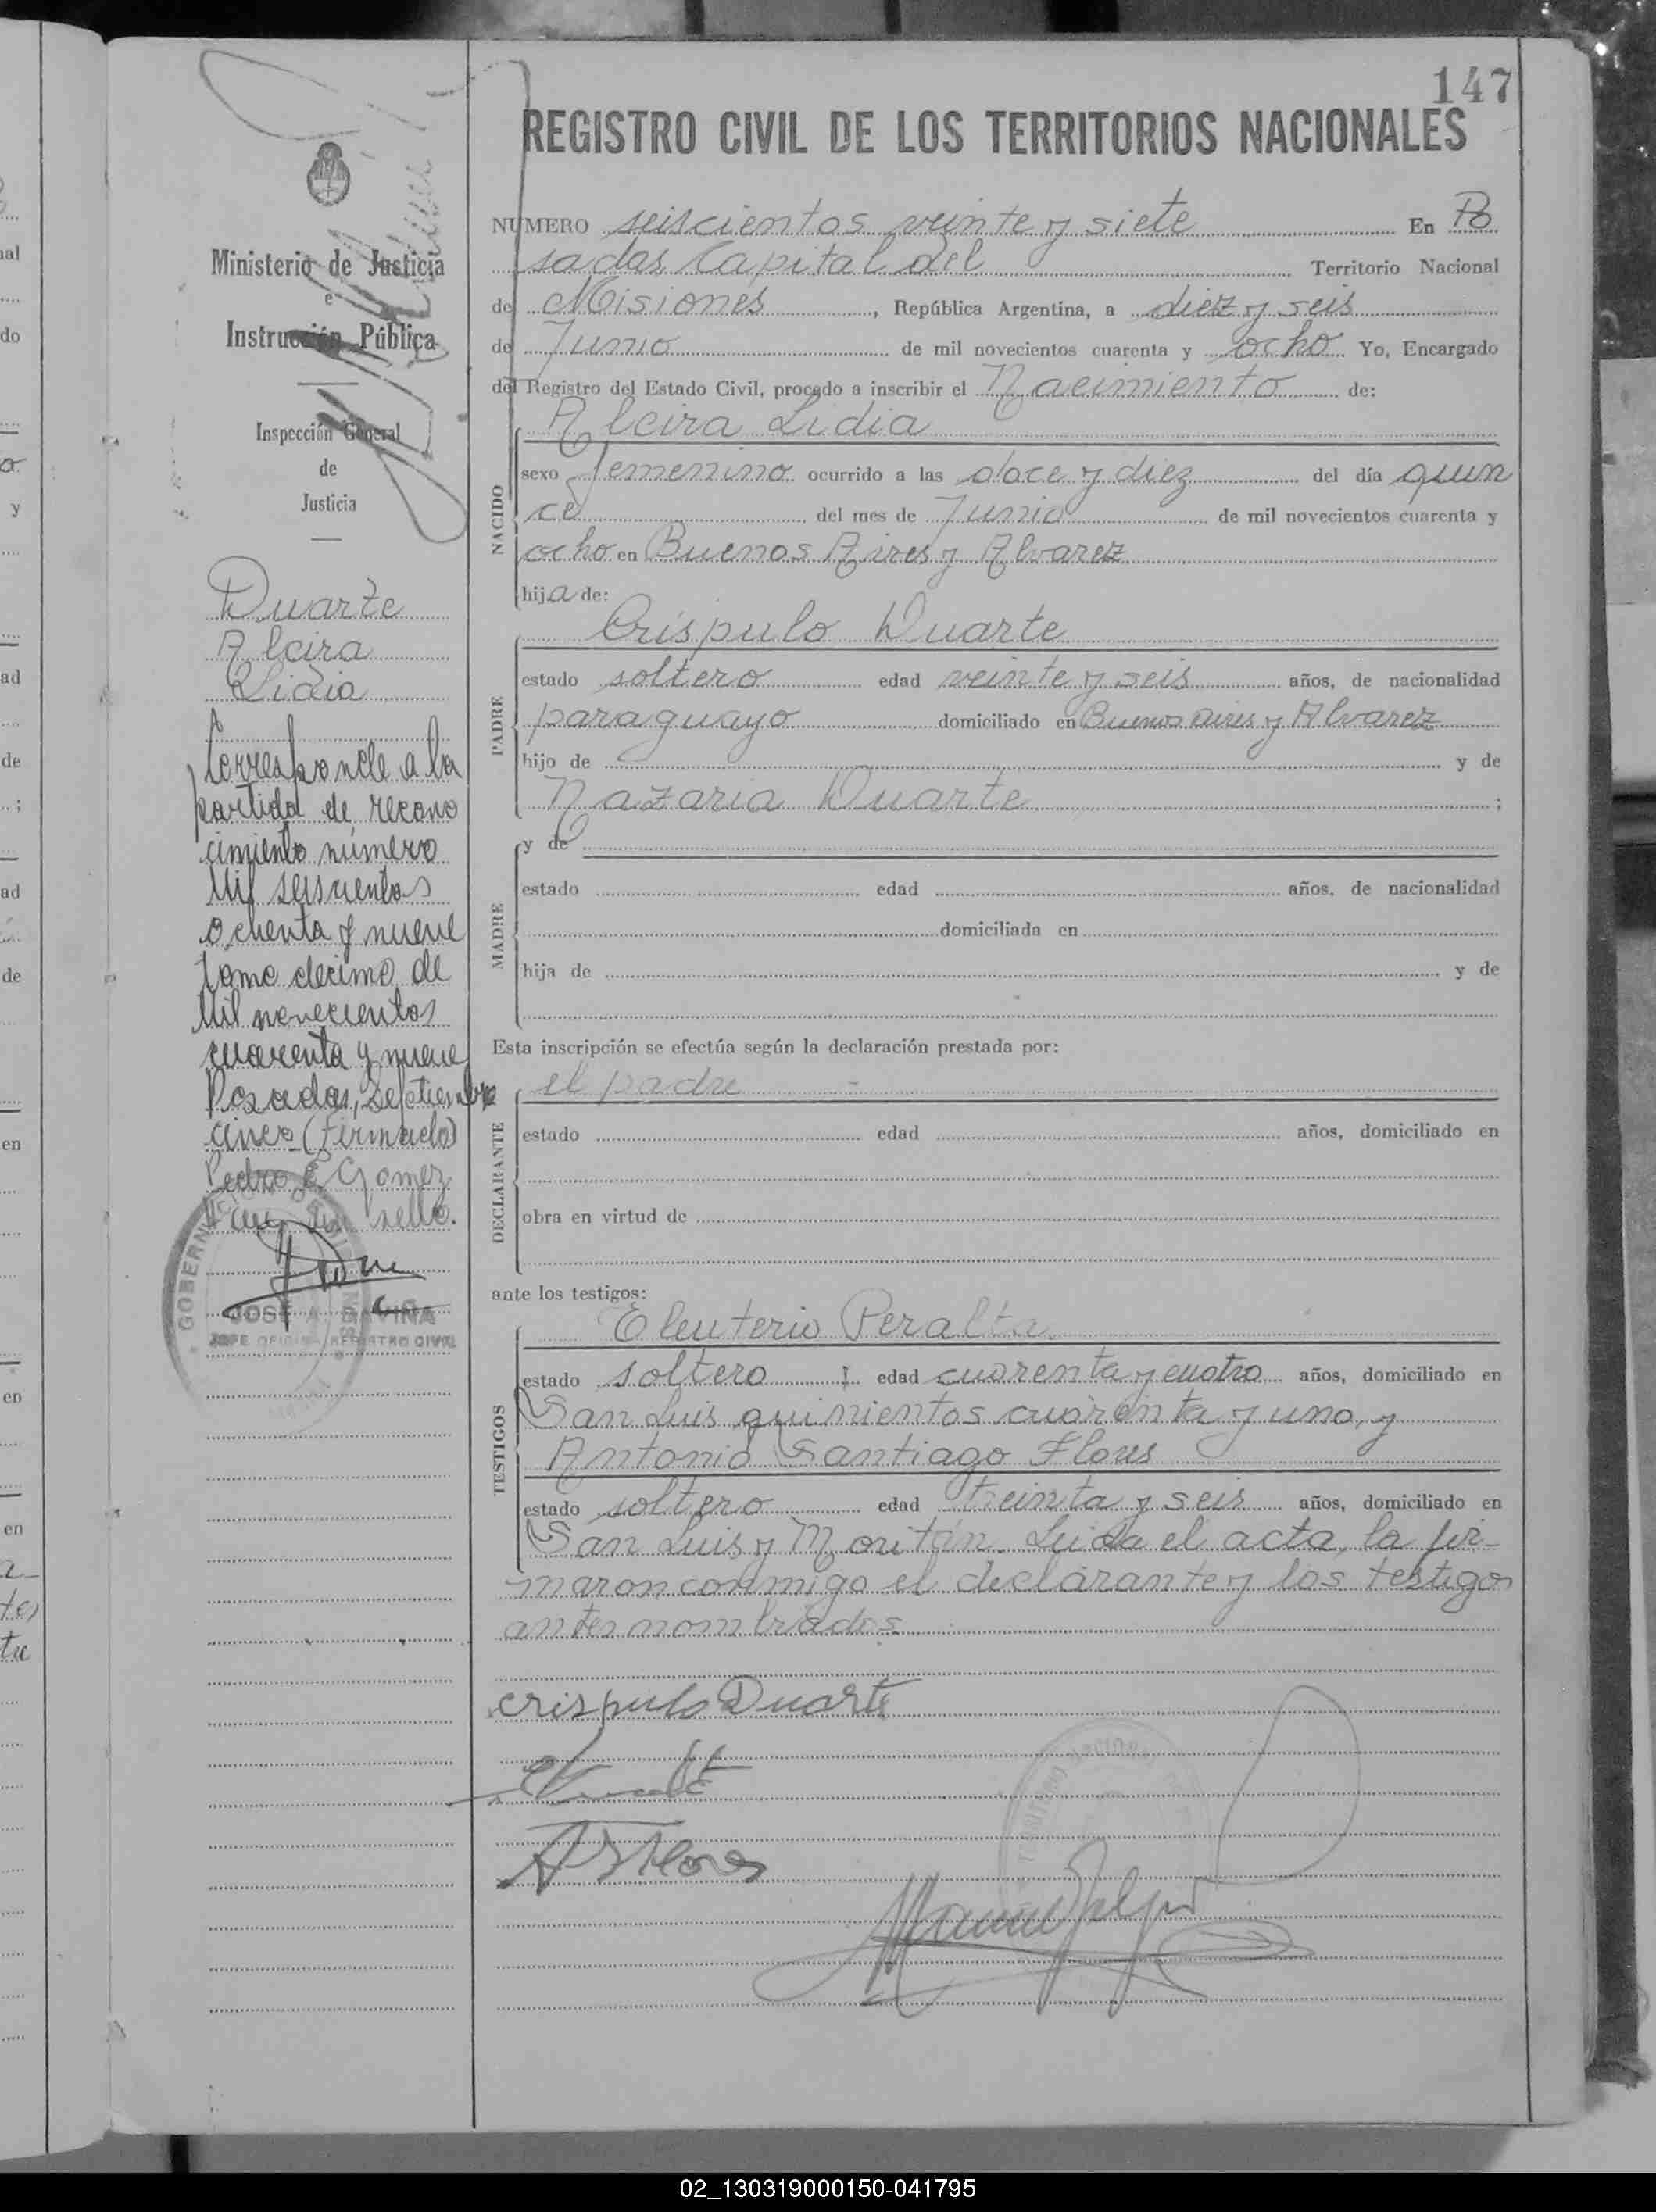 147
REGISTRO CIVIL DE LOS TERRITORIOS NACIONALES
Ministerio de Justicia
e
Instrucción Pública
Inspección General
de
Justicia
Duarte
Alcira
Lidia
Corresponde a la
partida de recono
cimiento número
Mil seiscientos
ochenta y nueve
tomo decimo de
Mil novecientos
cuarenta y nueve
Posadas, Septiembre
cinco (Firmado)
Pedro E Gomez
Hay un sello.
JOSE A. GAVIÑA
JEFE OFICINA REGISTRO CIVIL
NUMERO seiscientos veinte y siete En Po
sadas Capital del Territorio Nacional
de Misiones, República Argentina, a diez y seis
de Junio de mil novecientos cuarenta y ocho Yo, Encargado
del Registro del Estado Civil, procedo a inscribir el Nacimiento de:
NACIDO
Alcira Lidia
sexo femenino ocurrido a las doce y diez del día quin
ce del mes de Junio de mil novecientos cuarenta y
ocho en Buenos Aires y Alvarez
hija de:
PADRE
Críspulo Duarte
estado soltero edad veinte y seis años, de nacionalidad
paraguayo domiciliado en Buenos Aires y Alvarez
hijo de y de
Nazaria Duarte ;
MADRE
y de
estado edad años, de nacionalidad
domiciliada en
hija de y de
Esta inscripción se efectúa según la declaración prestada por:
DECLARANTE
el padre
estado edad años, domiciliado en
obra en virtud de
ante los testigos:
TESTIGOS
Eleuterio Peralta
estado soltero edad cuarenta y cuatro años, domiciliado en
San Luis quinientos cuarenta y uno, y
Antonio Santiago Flores
estado soltero edad treinta y seis años, domiciliado en
San Luis y Moritán. Leida el acta, la fir-
maron conmigo el declarante y los testigos
antes nombrados
crispulo Duarte
A S Flores
02_130319000150-041795